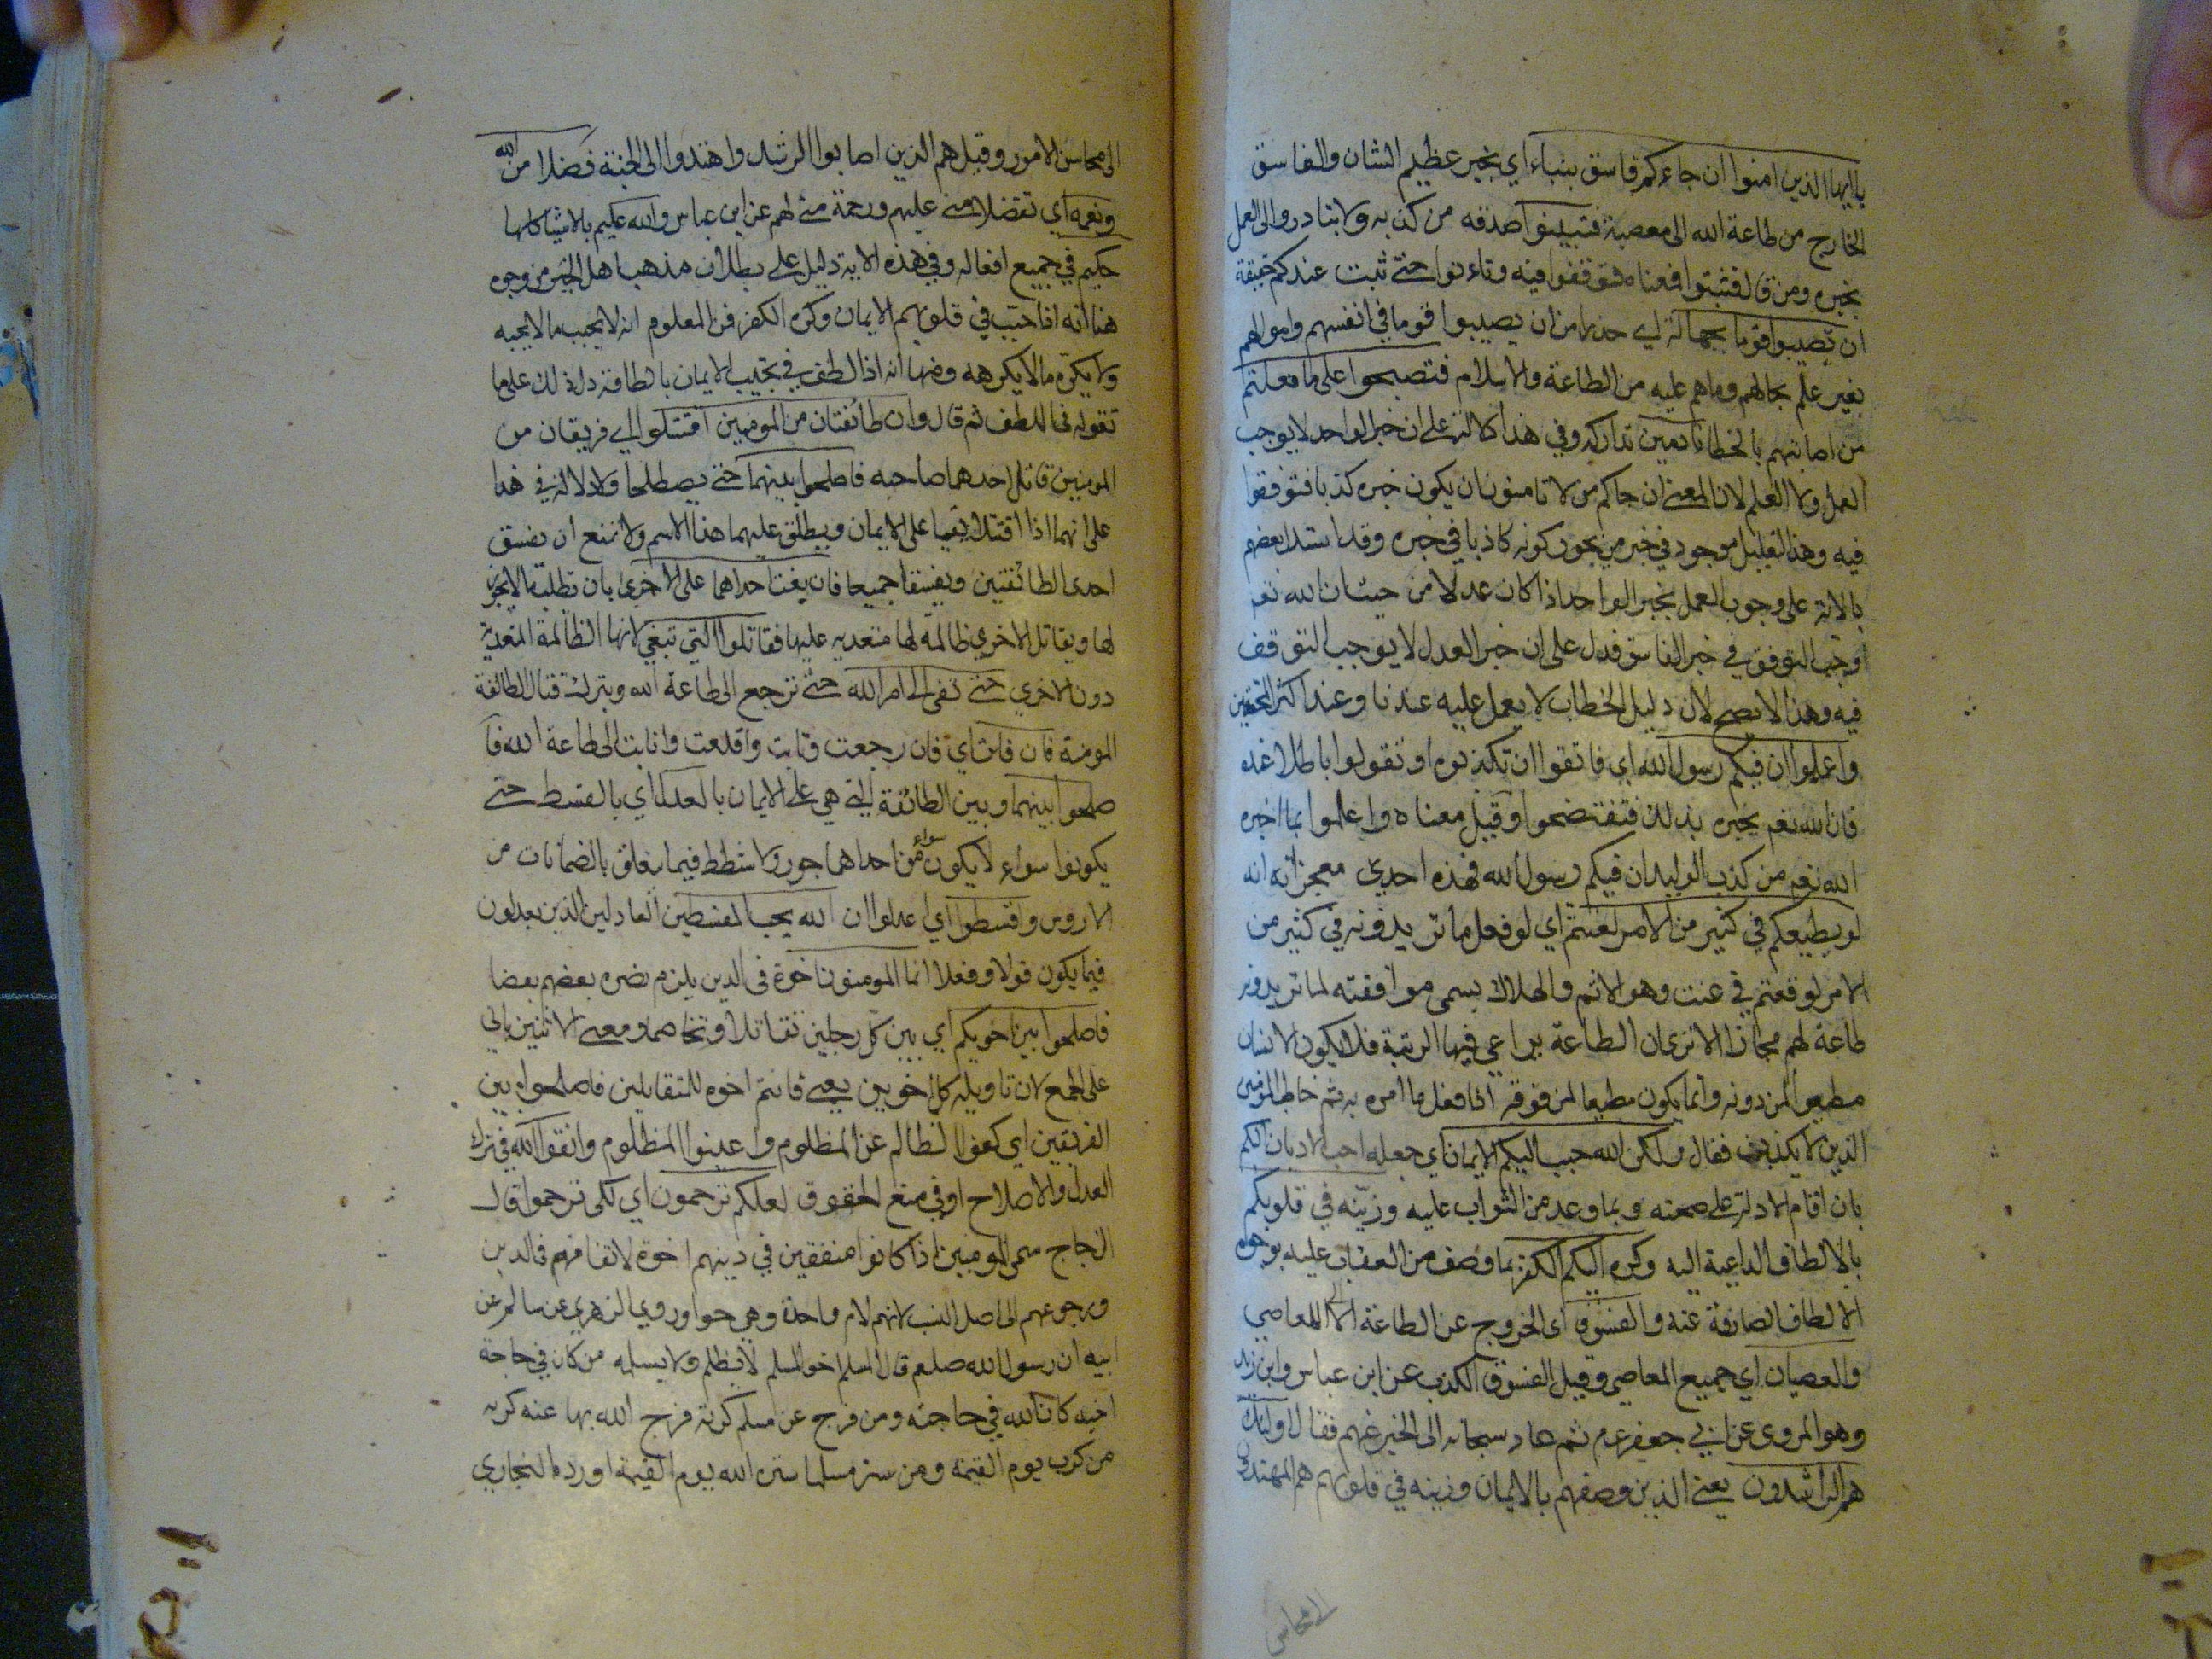 يا ايها الذين امنوا ان جاءكم فاسق بنباء اي بخبر عظيم الشان والفاسق
الخارج من طاعة الله الى معصية فتبينوا صدقه من كذبه ولا تبادروا الى العمل
بخبره ومن قال فتثبتوا فمعناه فتوقفوا فيه وتاءنوا حتى ثبت عندكم حقيقة
ان تصيبوا قوما بجهالة اي حذرا من ان يصيبوا قوما في انفسهم واموالهم
بغير علم بحالهم وما هم عليه من الطاعة والاسلام فتصبحوا على ما فعلتم
من اصابتهم بالخطا نادمين تداركه وفي هذا دلالة على ان خبر الواحد لا يوجب
العمل ولا العلم لان المعنى ان جاكم من لا تامنون ان يكون خبره كذبا فتوقفوا
فيه وهذا التعليل موجود في خبر من يجوز كونه كاذبا في خبره وقد استدل بعضهم
بالاية على وجوب العمل بخبر الواحد اذا كان عدلا من حيث ان الله تعم
اوجب التوقف في خبر الفاسق فدل على ان خبر العدل لا يوجب التوقف
فيه وهذا لا يصح لان دليل الخطاب لا يعمل عليه عندنا وعند اكثر المحققين
واعلموا ان فيكم رسول الله اي فاتقوا ان تكذبوه او تقولوا باطلا عنده
فان الله تعم يخبره بذلك فتفتضحوا وقيل معناه واعلموا بما اخبره
الله تعم من كذب الوليد ان فيكم رسول الله فهذه احدى معجزاته انه
لو يطيعكم في كثير من الامر لعنتم اي لو فعل ما تريدونه في كثير من
الامر لوقعتم في عنت وهو الاثم والهلاك يسمى موافقته لما تريدونه
طاعة لهم مجازا الا ترى ان الطاعة يراعي فيها الرتبة فلا يكون الانسان
مطيعا لمن دونه وانما يكون مطيعا لمن فوقه اذا فعل ما امره به ثم خاطب المؤمنين
الذين لا يكذبون فقال ولكن الله حبب اليكم الايمان اي جعله احب الاديان اليكم
بان اقام الادلة على صحته وبما وعد من الثواب عليه وزينه في قلوبكم
بالالطاف الداعية اليه وكره اليكم الكفر بما وصف من العقاب عليه بوجوه
الالطاف الصارفة عنه والفسوق اي الخروج عن الطاعة الى المعاصي
والعصيان اي جميع المعاصي وقيل الفسوق الكذب عن ابن عباس وابن زيد
وهو المروي عن ابي جعفر عم ثم عاد سبحانه الى الخبر عنهم فقال اولئك
هم الراشدون يعني الذين وصفهم بالايمان وزينه في قلوبهم هم المهتدون
الى محاسن
الى محاسن الامور وقيل هم الذين اصابوا الرشد واهتدوا الى الجنة فضلا من الله
ونعمه اي تفضلا مني عليهم ورحمة مني لهم عن ابن عباس والله عليم بالاشياء كلها
حكيم في جميع افعاله وفي هذه الاية دليل على بطلان مذهب اهل الجبر من وجوه
منها انه اذا حبب في قلوبهم الايمان وكره الكفر فمن المعلوم انه لا يحبب ما لا يحبه
ولا يكره ما لا يكرهه ومنها انه اذا لطف في تحبيب الايمان بالطافه دل ذلك على ما
تقوله في اللطف ثم قال وان طائفتان من المومنين اقتتلوا اي فريقان من
المومنين قاتل احدهما صاحبه فاصلحوا بينهما حتى يصطلحا ولا دلالة في هذا
على انهما اذا اقتتلا بقيا على الايمان ويطلق عليهما هذا الاسم ولا تمنع ان يفسق
احدى الطائفتين ويفسقا جميعا فان بغت احداهما على الاخرى بان تطلب ما لا يجوز
لها ويقاتل الاخرى ظالمة لها متعدية عليها فقاتلوا التي تبغي لانها الظالمة المتعدية
دون الاخرى حتى تفى الى امر الله حتى ترجع الى طاعة الله ويترك قتال الطائفة
المومنة فان فات اي فان رجعت وتابت واقلعت وانابت الى طاعة الله فا
صلحوا بينهما وبين الطائفة التي هي على الايمان بالعدل اي بالقسط حتى
يكونوا سواء لا يكون من احداهما جور ولا شطط فيما يتعلق بالضمانات من
الاروس واقسطوا اي اعدلوا ان الله يحب المقسطين العادلين الذين يعدلون
فيما يكون قولا وفعلا انما المومنون اخوة في الدين يلزم نصره بعضهم بعضا
فاصلحوا بين اخويكم اي بين كل رجلين تقاتلا وتخاصما ومعنى الاثنين ياتي
على الجمع لان تاويله كل اخوين يعني فانتم اخوه للمتقابلين فاصلحوا بين
الفريقين اي كفوا الظالم عن المظلوم واعينوا المظلوم واتقوا الله في ترك
العدل والاصلاح او في منع الحقوق لعلكم ترحمون اي لكي ترحموا قال
الزجاج سمى المومنين اذا كانوا متفقين في دينهم اخوة لاتفاقهم في الدين
ورجوعهم الى اصل النسب لانهم لام واحدة وهي حوا وروي الزهري عن سالم عن
ابيه ان رسول الله صلعم قال المسلم اخو المسلم لا يظلمه ولا يسلمه من كان في حاجة
اخيه كان الله في حاجته ومن فرج عن مسلم كربة فرج الله بها عنه كربه
من كرب يوم القيمة ومن ستر مسلما ستره الله يوم القيمة اورده البخاري